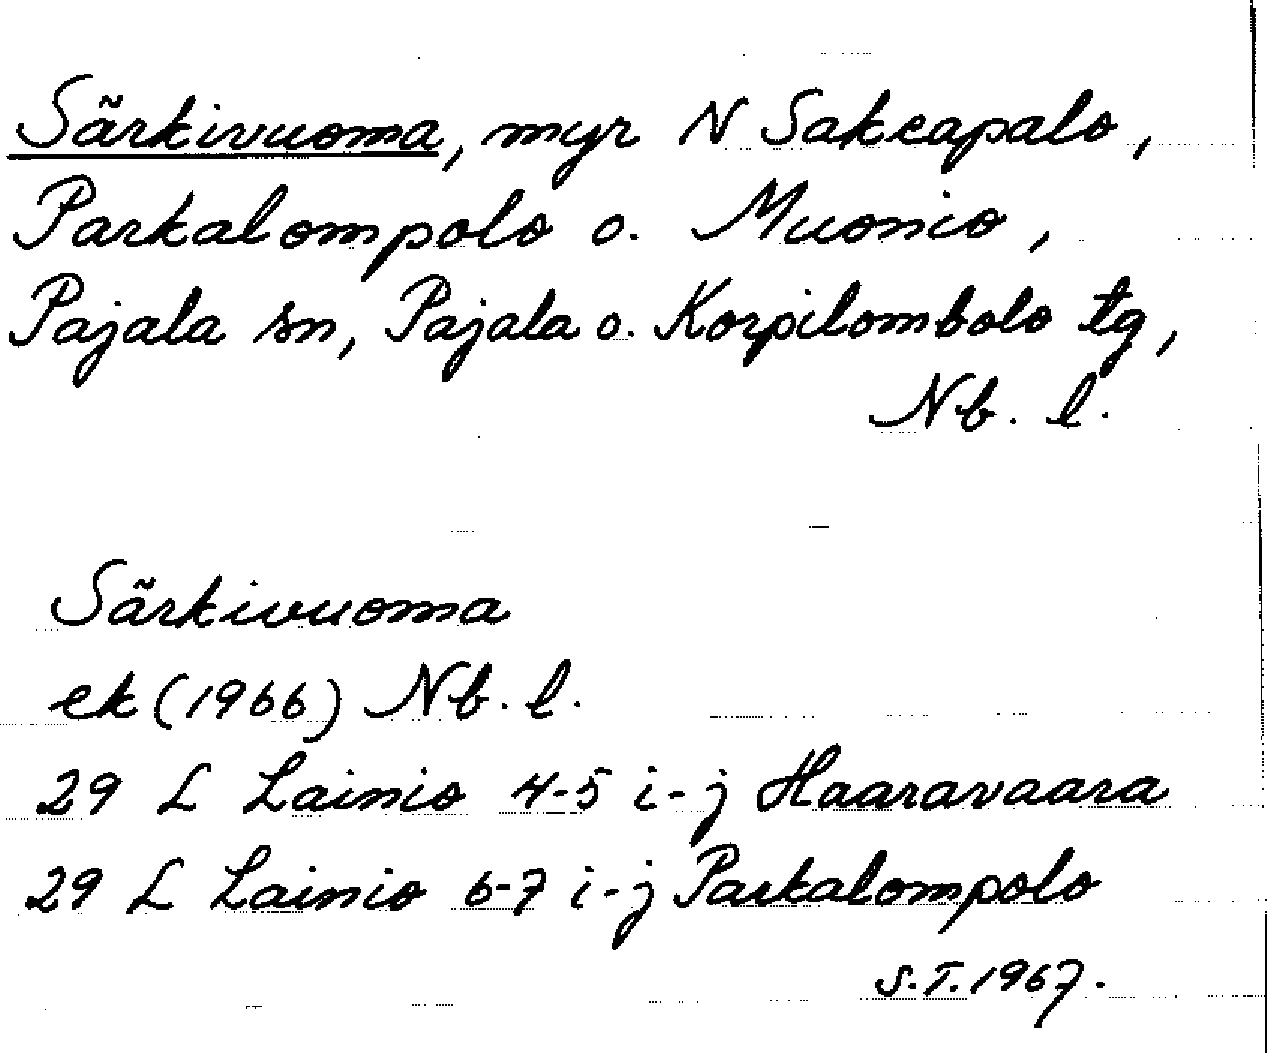 Särkivuoma, myr N Sakeapalo,
Parkalompolo o. Muonio,
Pajala sn, Pajala o. Korpilombolo tg,
Nb. l.
Särkivuoma
ek (1966) Nb. l.
29 L Lainio 4-5 i-j Haaravaara
29 L Lainio 6-7 i-j Parkalompolo
S.T. 1967.